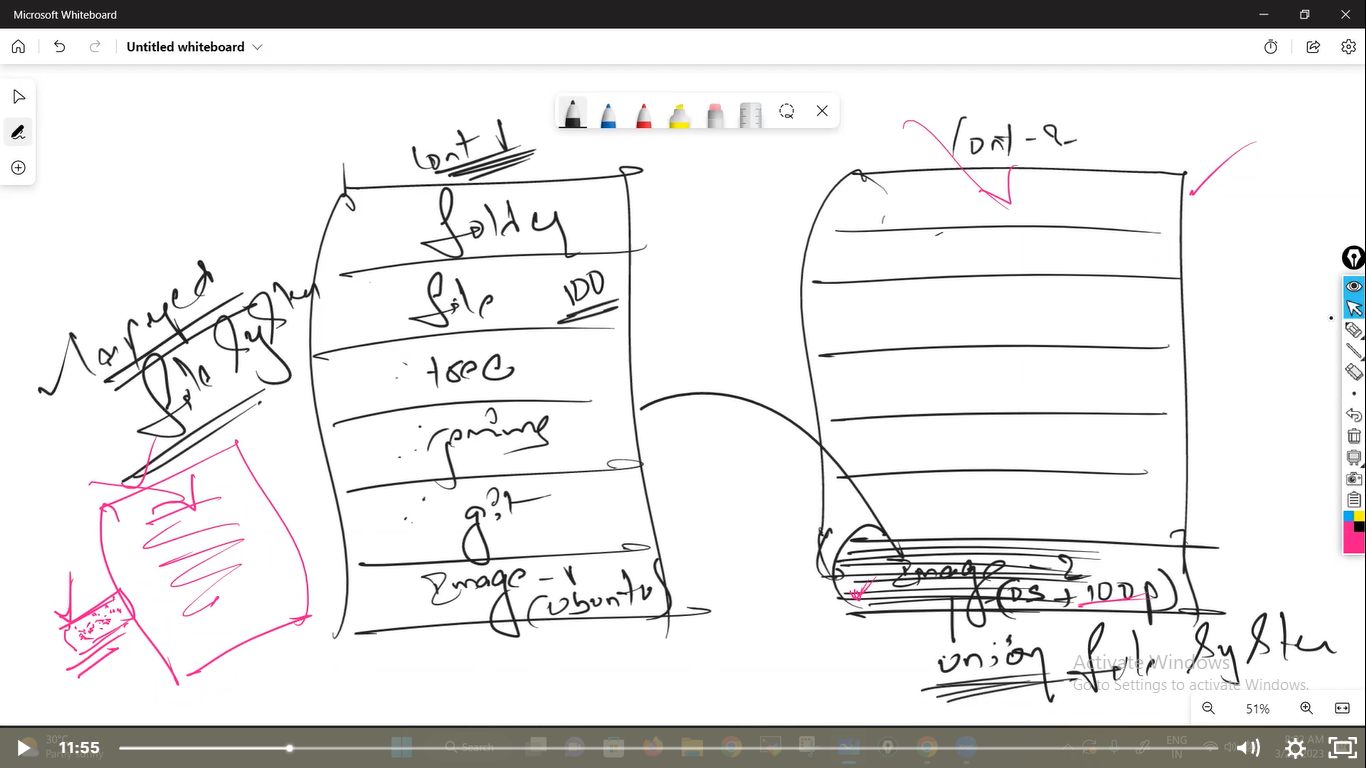 Microsoft Whiteboard
Untitled whiteboard
Cont 1
folder
file 100
tree
git
Image-1
(ubuntu)
file System
Cont-2
Image-2
(OS + 100p)
union file System
Activate Windows
Go to Settings to activate Windows.
51%
11:55
30°C
Search
ENG
IN